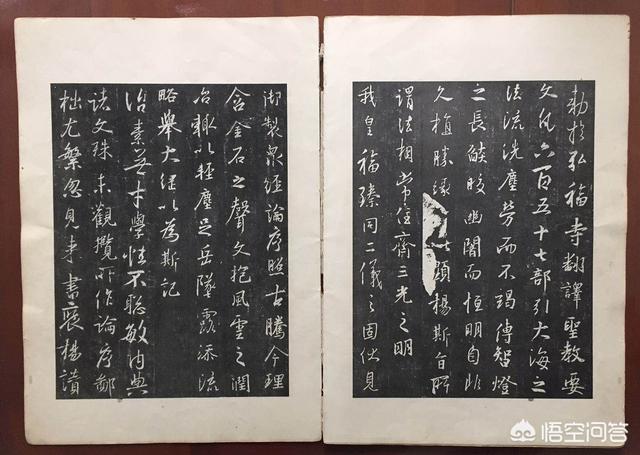 敕於弘福寺翻譯聖教要
文凡六百五十七部引大海之
法流洗塵勞而不竭傳智燈
之長燄皎幽闇而恒明自非
久植勝緣顯揚斯旨所
謂法相常住齊三光之明
我皇福臻同二儀之固伏見
御製眾經論序照古騰今理
含金石之聲文抱風雲之潤
治輒以輕塵足岳墜露添流
略舉大綱以為斯記
治素無才學性不聰敏內典
諸文殊未觀攬所作論序鄙
拙尤繁忽見來書褒揚讚
悟空问答